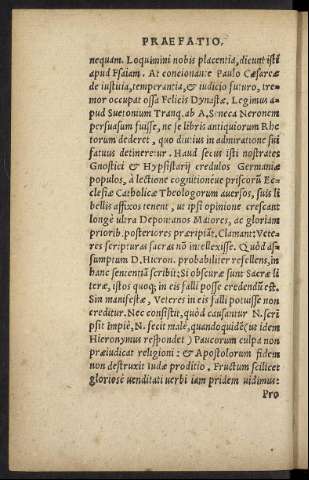 PRAEFATIO.
nequam. Loquimini nobis placentia, dicunt isti
apud Esaiam. At concionante Paulo Cæsareæ
de iustitia, temperantia, & iudicio futuro, tre-
mor occupat ossa Felicis Dynastæ. Legimus a-
pud Suetonium Tranq. ab A. Seneca Neronem
persuasum fuisse, ne se libris antiquiorum Rhe
torum dederet, quo diutius in admiratione sui
fatuus detineretur. Haud secus isti nostrates
Gnostici & Hypsistarij credulos Germaniæ
populos, à lectione cognitioneue priscorũ Ec-
clesiæ Catholicæ Theologorum auersos, suis li
bellis affixos tenent, ut ipsi opinione crescant
longè ultra Depontanos Maiores, ac gloriam
priorib. posteriores præripiãt. Clamant: Vete-
res scripturas sacras nõ intellexisse. Quòd as-
sumptum D. Hieron. probabiliter refellens, in
hanc sententiã scribit: Si obscuræ sunt Sacræ li
teræ, istos quoq; in eis falli posse credendũ est.
Sin manifestæ, Veteres in eis falli potuisse non
creditur. Nec consistit, quòd causantur N. scri
psit impiè, N. fecit malè, quandoquidẽ (ut idem
Hieronymus respondet) Paucorum culpa non
præiudicat religioni: & Apostolorum fidem
non destruxit Iudæ proditio. Fructum scilicet
gloriosè uenditati uerbi iam pridem uidimus:
Pro